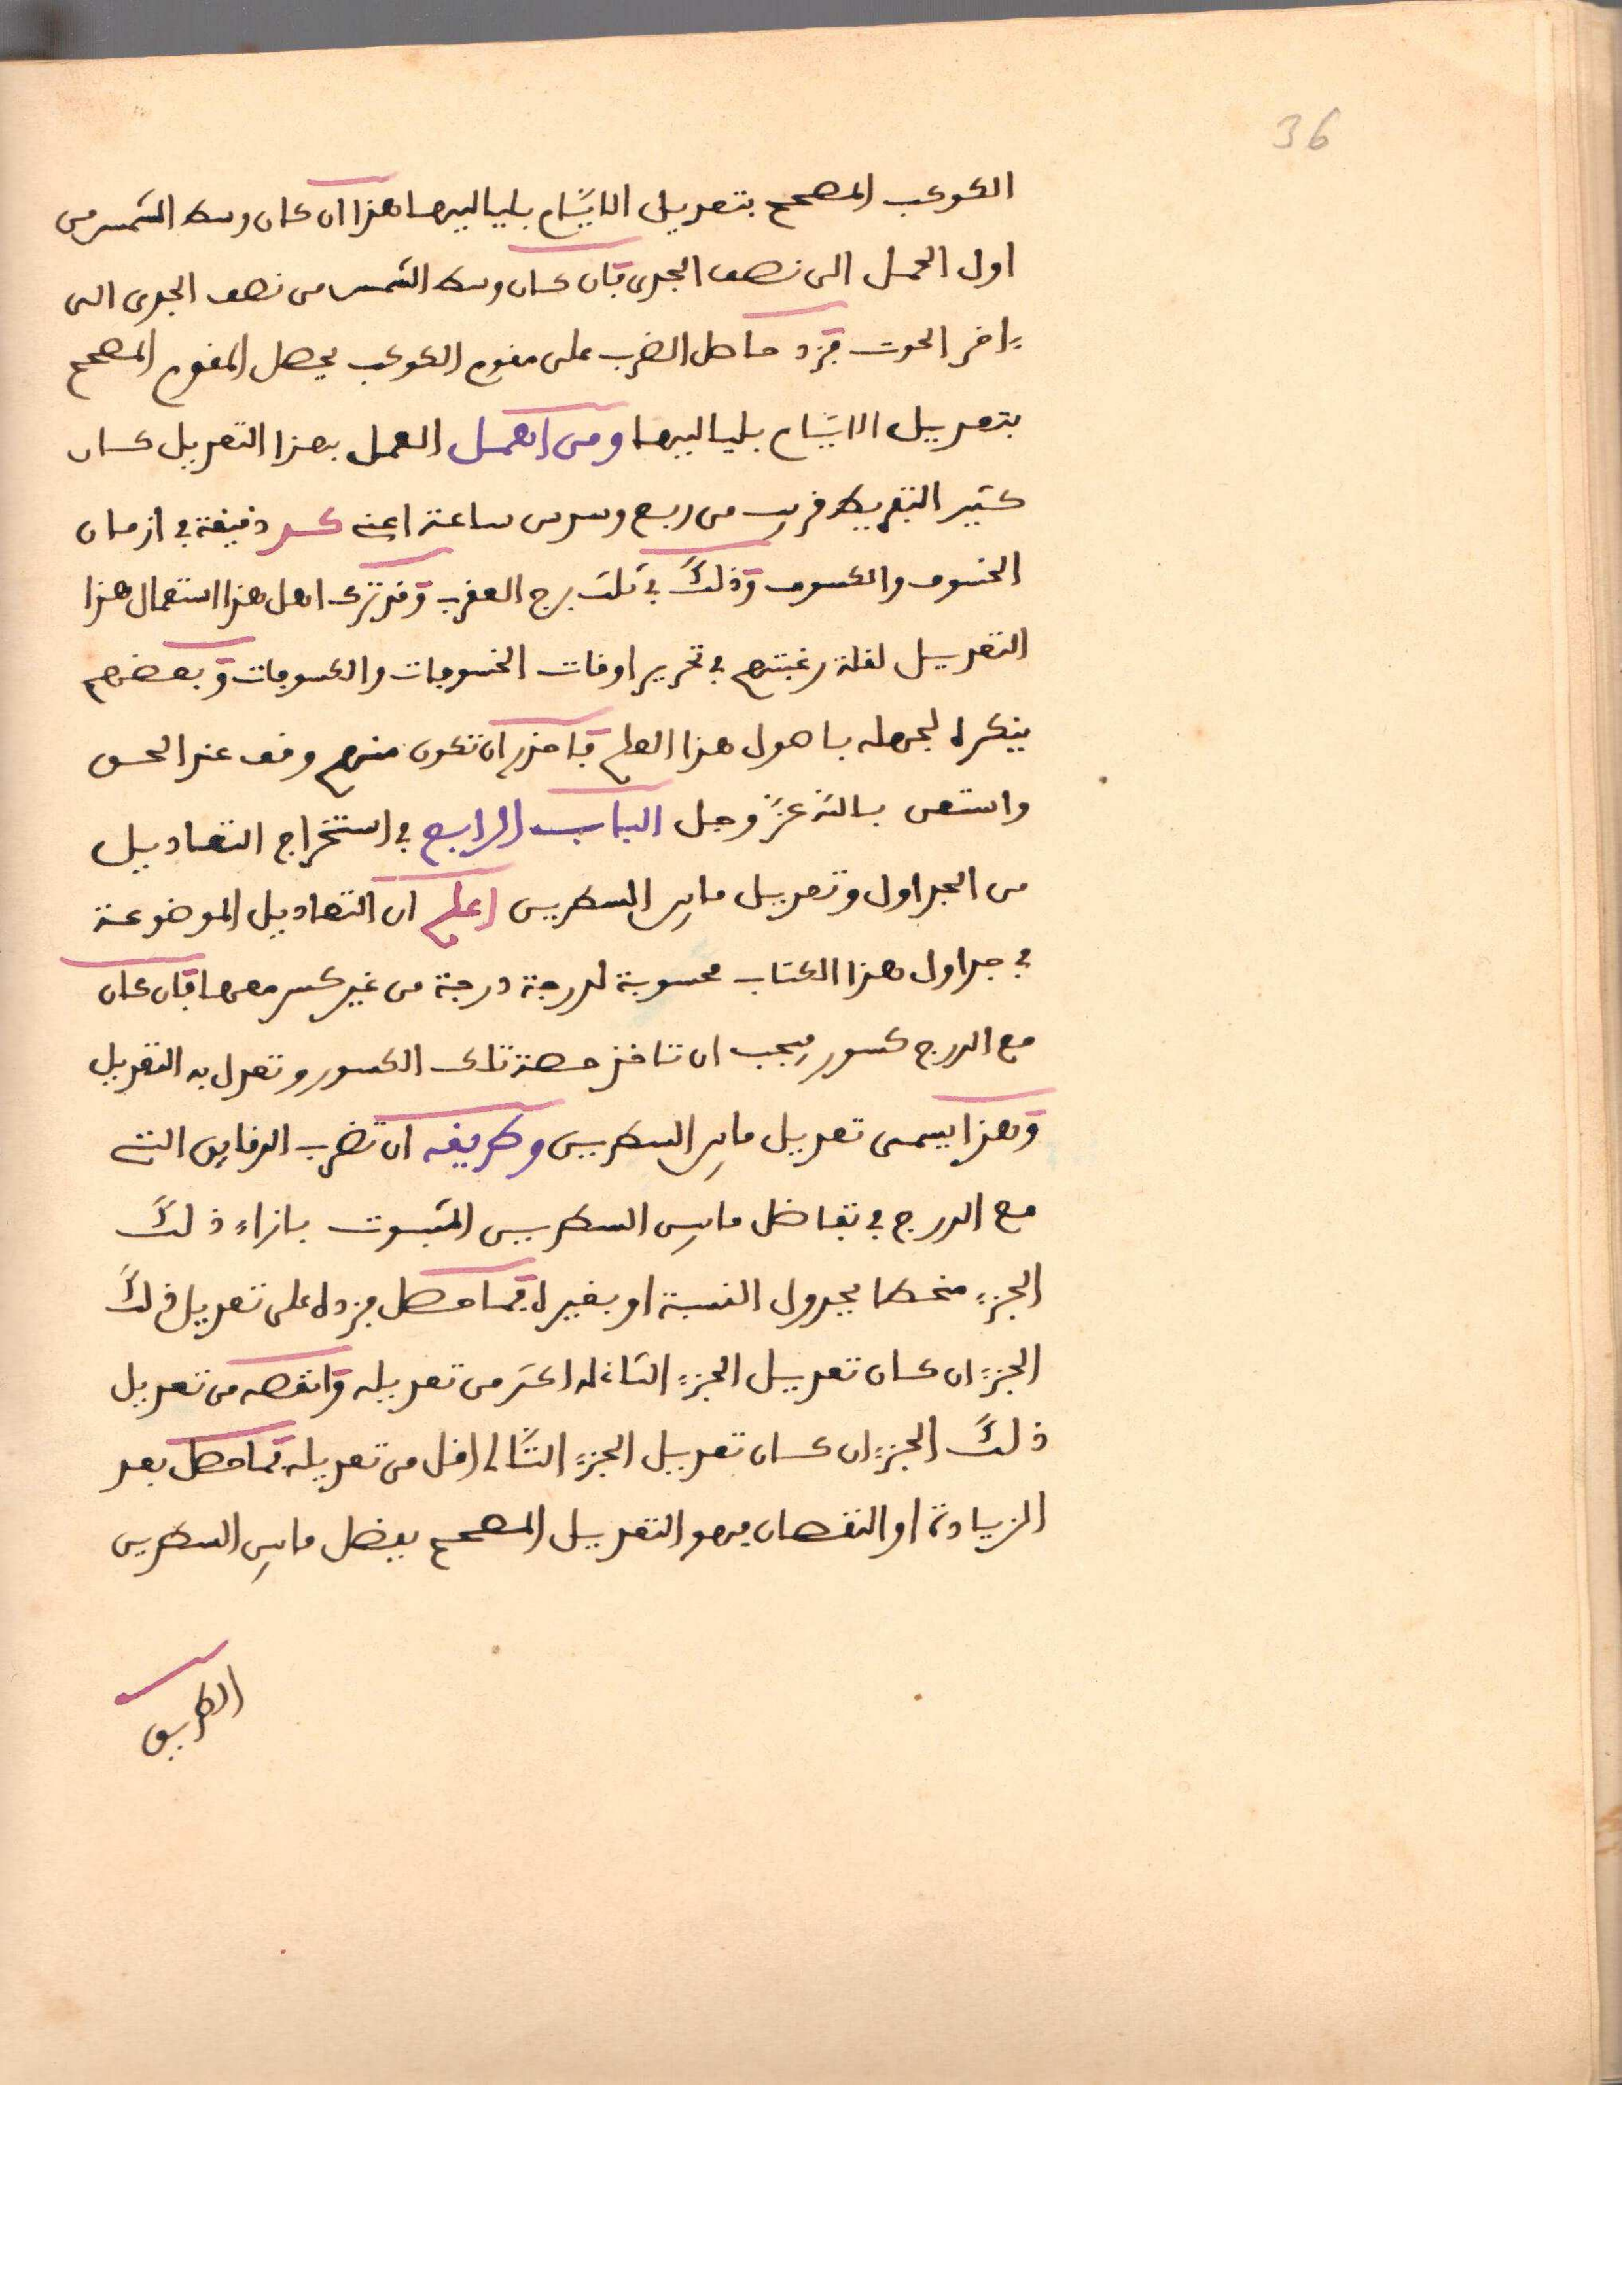 36
الكوكب المصحح بتعديل الايام بلياليها هذا ان كان وسط الشمس من
اول الحمل الى نصف الجدى فان كان وسط الشمس من نصف الجدى الى
ءاخر الحوت فزد حاصل الضرب على مقوم الكوكب يحصل المقوم المصحح
بتعديل الايام بلياليها ومن اهمل العمل بهذا التعديل كان
كثير التفريط قريب من ربع وسدس ساعة اعنى كـد دقيقة في ازمان
الخسوف والكسوف وذلك في ثلث برج العقرب وقد ترك اهل هذا استعمال هذا
التعديل لقلة رغبتهم في تحرير اوقات الخسوفات والكسوفات وبعضهم
ينكره لجهله باصول هذا العلم فاحذر ان تكون منهم وقف عند الحق
واستعن بالله عز وجل الباب الرابع في استخراج التعاديل
من الجداول وتعديل مابين السطرين اعلم ان التعاديل الموضوعة
في جداول هذا الكتاب محسوبة لدرجة درجة من غير كسر معها فان كان
مع الدرج كسور فيجب ان تاخذ حصة تلك الكسور وتعدل به التعديل
وهذا يسمى تعديل مابين السطرين وطريقه ان تضرب الدقايق التي
مع الدرج في تفاضل مابين السطرين المثبوت بازاء ذلك
الجزء منحطا بجدول النسبة او بغيره فما حصل فزده على تعديل ذلك
الجزء ان كان تعديل الجزء الثاني له اكثر من تعديله وانقصه من تعديل
ذلك الجزء ان كان تعديل الجزء التالى اقل من تعديله فما حصل بعد
الزيادة او النقصان فهو التعديل المصحح بفضل مابين السطرين
الطريق